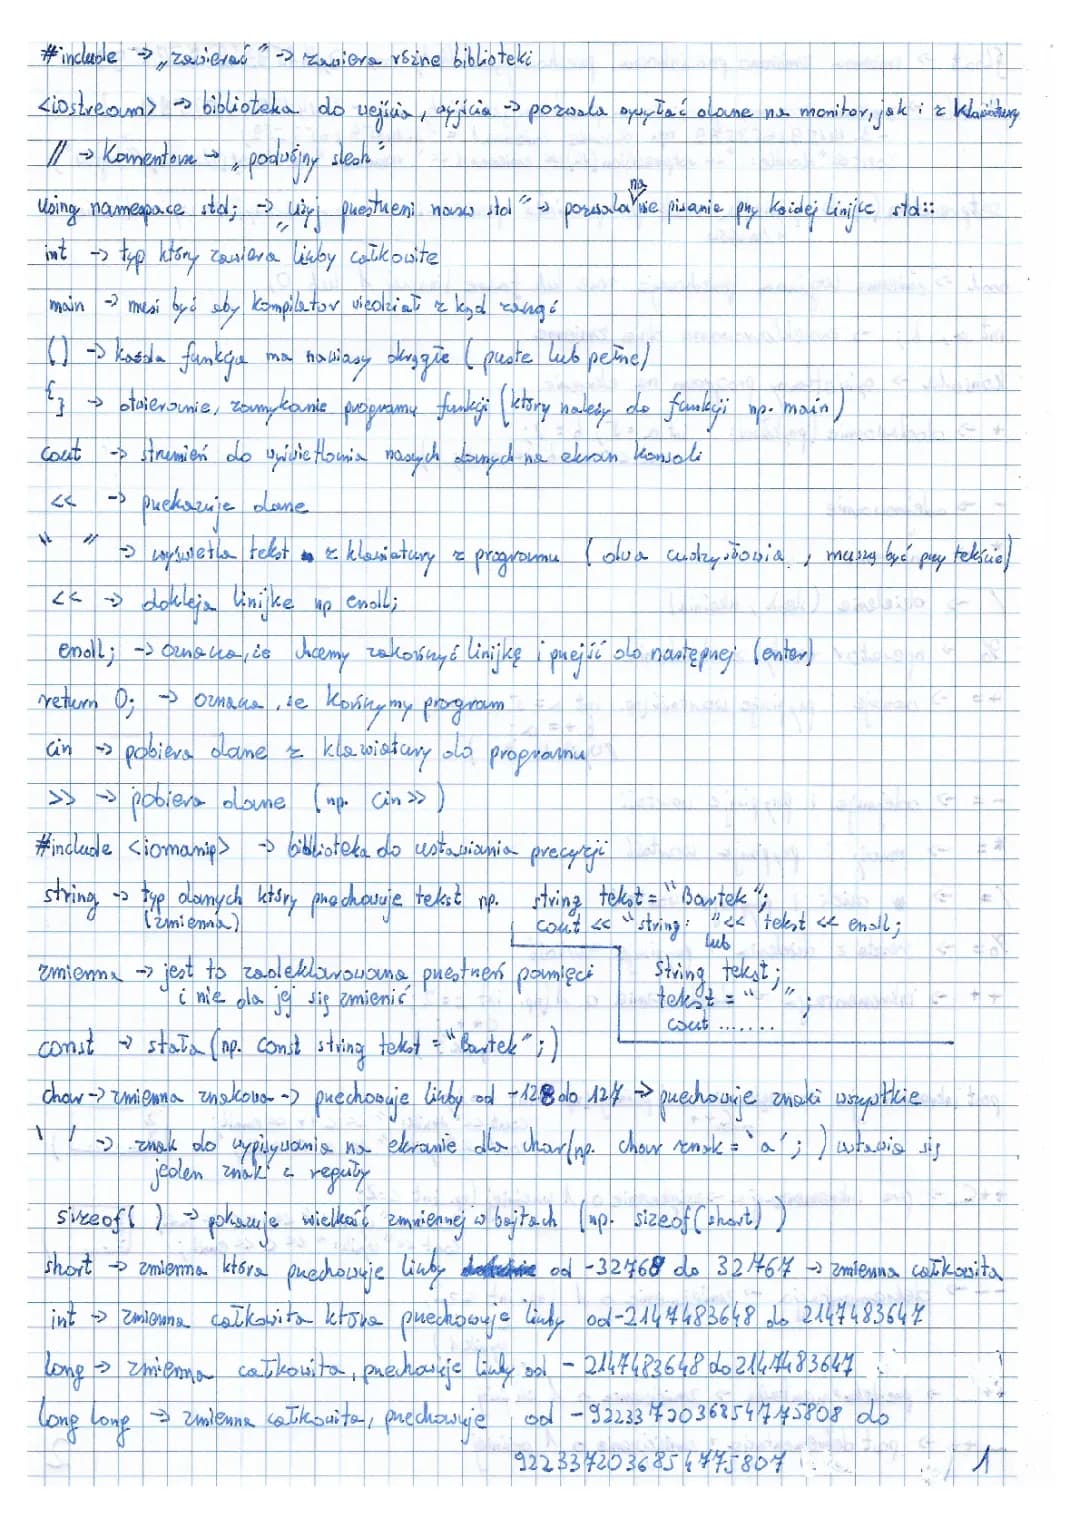 #include → „zawierać" → zawiera różne biblioteki
<iostream> → biblioteka do wejścia, wyjścia → pozwala wysyłać dane na monitor, jak i z klawiatury
// → Komentarz → „podwójny slesh"
Using namespace std; → „użyj przestrzeni nazw std" → pozwala na nie pisanie przy każdej linijce std::
int → typ który zawiera liczby całkowite
main → musi być aby kompilator wiedział z kąd zacząć
() → każda funkcja ma nawiasy okrągłe (puste lub pełne)
{} → otwieranie, zamykanie programu funkcji (który należy do funkcji np. main)
cout → strumień do wyświetlania naszych danych na ekran konsoli
<< → przekazuje dane
" " → wyświetla tekst z klawiatury z programu (dwa cudzysłowia, muszą być przy tekście)
<< → dokleja linijke np endl;
endl; → oznacza, że chcemy zakończyć linijkę i przejść do następnej (enter)
return 0; → oznacza, że kończymy program
cin → pobiera dane z klawiatury do programu
>> → pobiera dane (np. cin >>)
#include <iomanip> → biblioteka do ustawiania precyzji
string → typ danych który przechowuje tekst np. string tekst = "Bartek";
(zmienna) cout << "string: " << tekst << endl;
lub
zmienna → jest to zadeklarowana przestrzeń pamięci string tekst;
i nie da jej się zmienić tekst = " ";
cout .......
const → stała (np. const string tekst = "Bartek";)
char → zmienna znakowa → przechowuje liczby od -128 do 127 → przechowuje znaki wszystkie
' ' → znak do wypisywania na ekranie dla char (np. char znak = 'a';) wstawia się
jeden znak z reguły
sizeof( ) → pokazuje wielkość zmniennej w bajtach (np. sizeof(short))
short → zmienna która przechowuje liczby od -32768 do 32767 → zmienna całkowita
int → zmienna całkowita która przechowuje liczby od -2147483648 do 2147483647
long → zmienna całkowita, przechowuje liczby od -2147483648 do 2147483647
long long → zmienna całkowita, przechowuje od -9223372036854775808 do
9223372036854775807 1